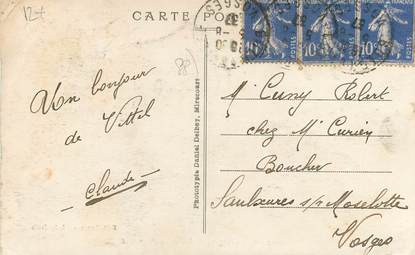 12+
CARTE POS
VOSGES
37
10c 10c 10c
POSTES POSTES
(88)
Un bonjour
de Vittel
Claude
Phototypie Daniel Delbey, Mirecourt
Mr Cuny Robert
chez Mr Curien
Boucher
Saulxures s/s Moselotte
Vosges